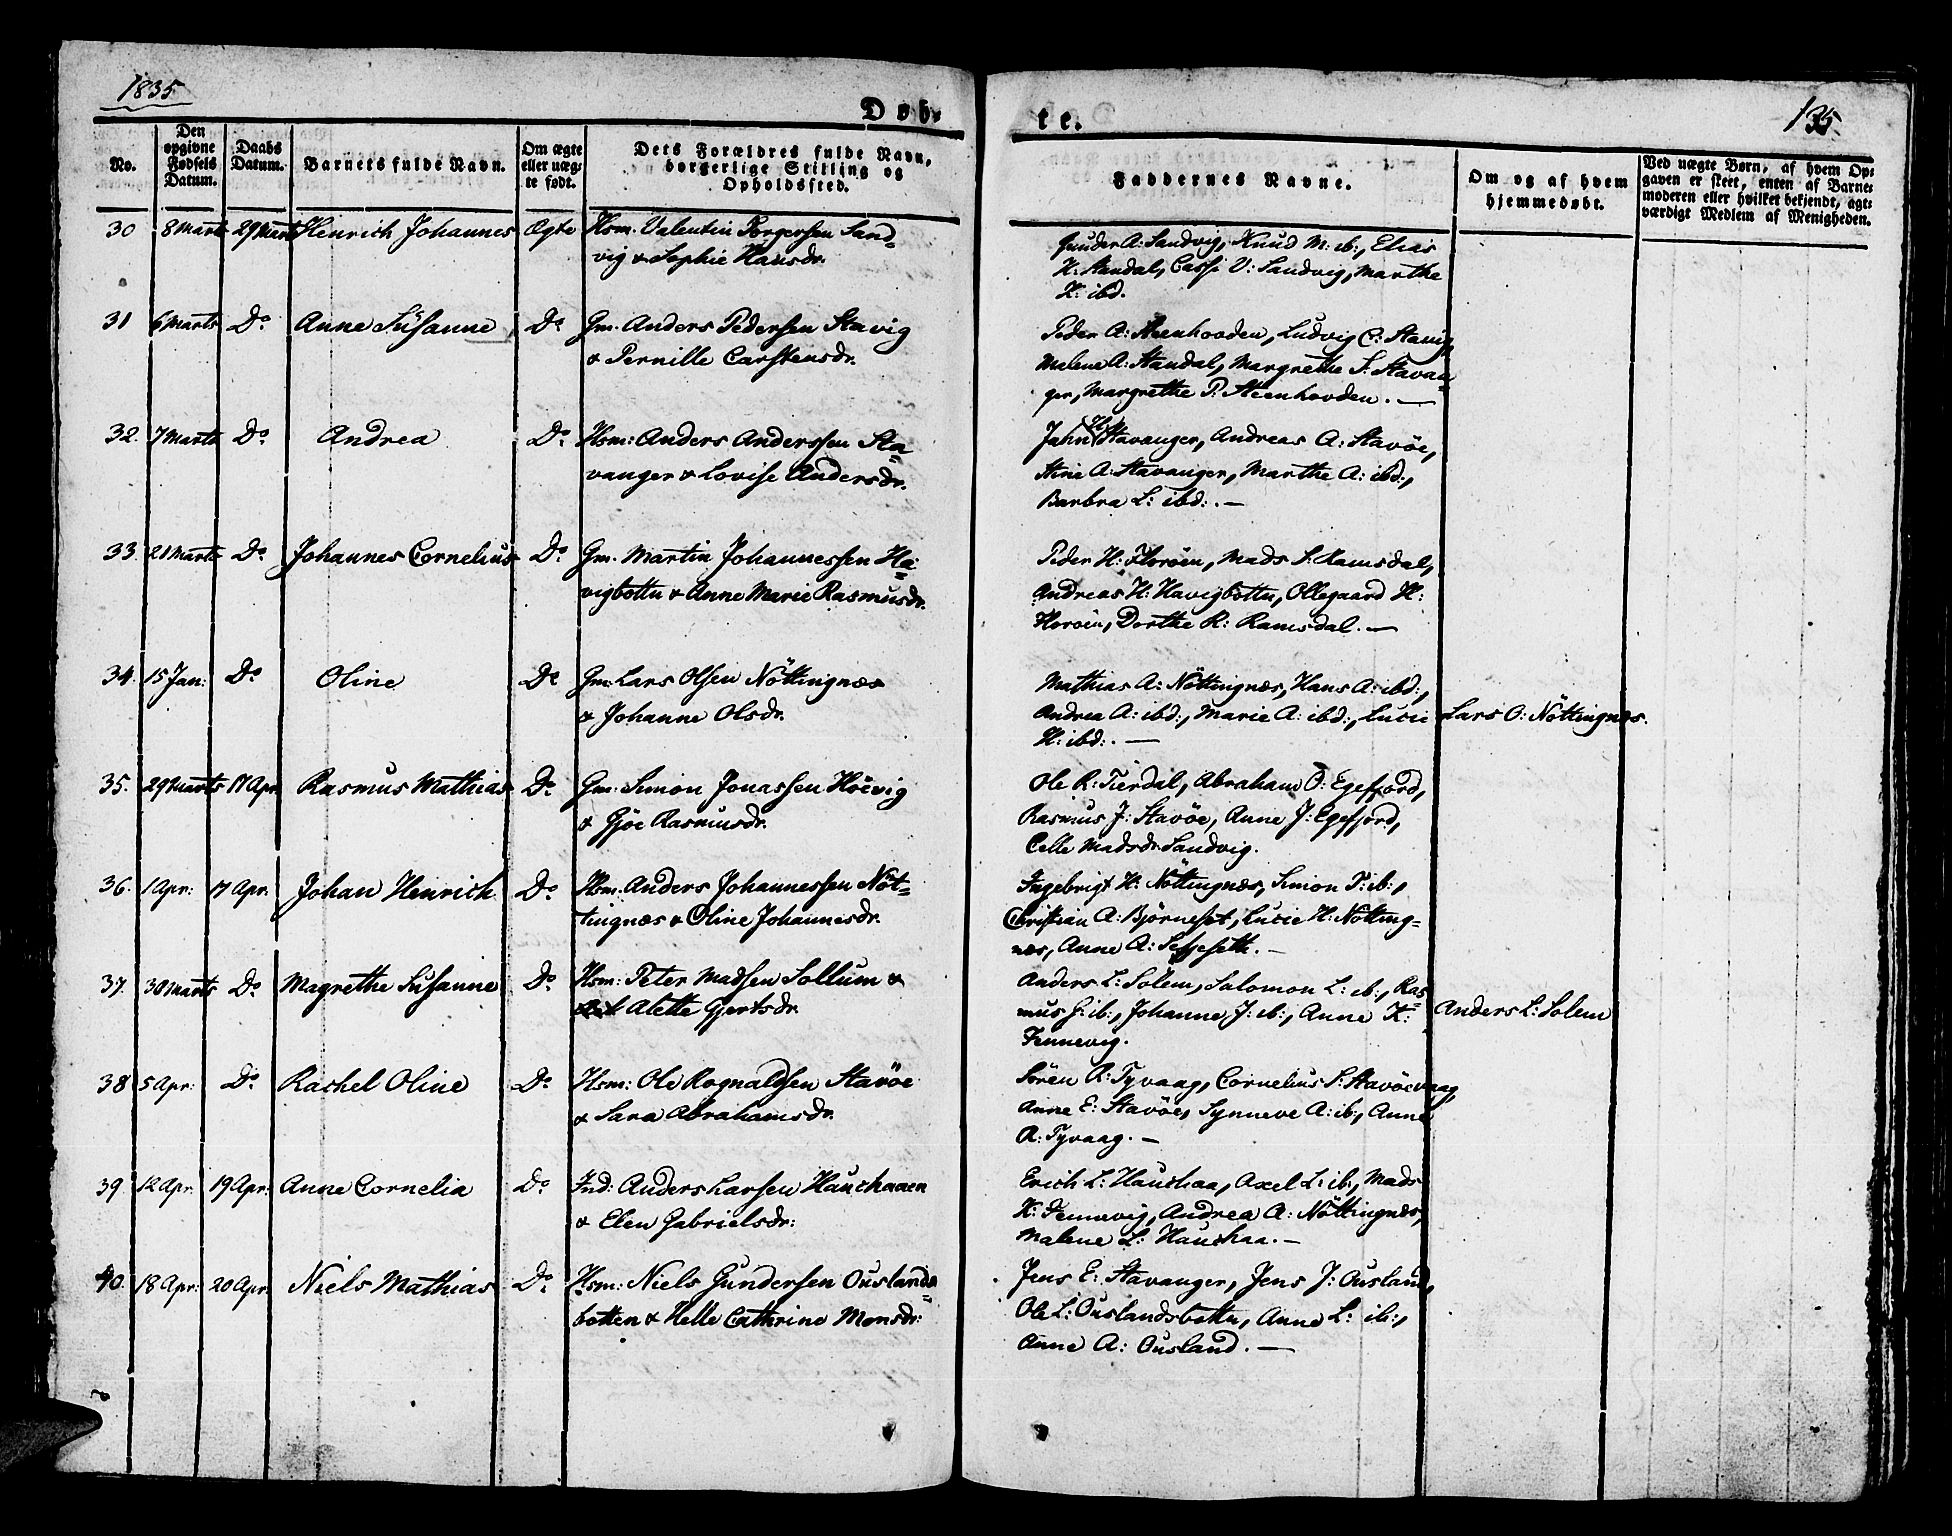 1835
Döb-
te.
135.
No.
Den opgivne Fødsels Datum.
Daabs Datum.
Barnets fulde Navn.
Om ægte eller uæg-te født.
Dets Forældres fulde Navn, borgerlige Stilling og Opholdssted.
Faddernes Navne.
Om og af hvem hjemmedøbt.
Ved uægte Børn, af hvem Op-
gaven er skeet, enten af Barne-
moderen eller hvilket bekjendt, agt-
værdigt Medlem af Menigheden.
30 8 Marts 29 Marts Henrich Johannes Ægte Hsm. Valentin Torgersen Sand-
vig & Sophie Hansdr.
Gunder A: Sandvig, Knud M: ib:, Elias
H: Standal, Casse V: Sandvig, Marthe
H: ibd.
31 6 Marts Do. Anne Süsanne Do. Gm. Anders Pedersen Stavig
& Pernille Carstensdr.
Peder A: Steenhovden, Ludvig C: Stavig,
Malene A: Standal, Margrethe S: Stavan-
ger, Margrethe P: Steenhovden. —
32. 7 Marts Do. Andrea Do. Hsm: Anders Anderssen Sta-
vanger & Lovise Andersdr.
Jahn H: Stavanger, Andreas A: Stavöe,
Stine A: Stavanger, Marthe A: ibd:,
Barbra L: ibd:. —
33. 21 Marts Do. Johannes Cornelius Do. Gm. Martin Johannessen Ha-
vigbottn & Anne Marie Rasmusdr.
Peder H: Floröen, Mads S: Ramsdal,
Andreas H: Havigbottn, Ollegaard H:
Floröen, Dorthe R: Ramsdal. —
34. 15 Jan: Do. Oline Do Gm: Lars Olsen Nöttingnæs
& Johanne Olsdr.
Mathias A: Nöttingnæs, Hans A: ibd:,
Andrea A: ibd:, Marie A: ibd:, Lucie
H: ibd:. —
Lars O: Nöttingnæs.
35. 29 Marts 17 Apr. Rasmus Mathias Do. Gm. Simon Jonassen Höevig
& Gjöe Rasmusdr.
Ole R: Tierdal, Abraham O: Egefjord,
Rasmus J: Stavöe, Anne J: Egefjord,
Celle Madsdr. Sandvig.
36. 1 Apr: 17 Apr. Johan Henrich Do. Hsm. Anders Johannessen Nöt-
tingnæs & Oline Johannesdr.
Ingebrigt H: Nöttingnæs, Simon P: ib:,
Christian A: Björneset, Lucie H: Nötting-
næs, Anne A: Sessesett. —
37. 30 Marts Do. Magrethe Susanne Do. Hsm: Peter Madsen Sollum &
Alette Gjertsdr.
Anders L: Solem, Salomon L: ib:, Ras-
mus G: ib:, Johanne J: ib:, Anne K:
Fennevig.
Anders L: Solem
38 5 Apr: Do. Rachel Oline Do. Hsm: Ole Rognaldsen Stavöe
& Sara Abrahamsdr.
Sören R: Tyvaag, Cornelius S: Stavöevaag,
Anne E: Stavöe, Synneve A: ib:, Anne
R: Tyvaag. —
39. 12 Apr. 19 Apr: Anne Cornelia Do. Ind: Anders Larsen Hauchaaen
& Elen Gabrielsdr:
Erich L: Hauchaa, Axel L: ib:, Mads
K: Fennevig, Andrea A: Nöttingnæs,
Malene L: Hauchaa. —
40. 18 Apr: 20 Apr. Niels Mathias Do. Hsm: Niels Gundersen Ouslands-
botten & Helle Cathrine Monsdr:
Jens E: Stavanger, Jens J: Ousland,
Ole L: Ouslandsbottn, Anne L: ib:,
Anne A: Ousland. —